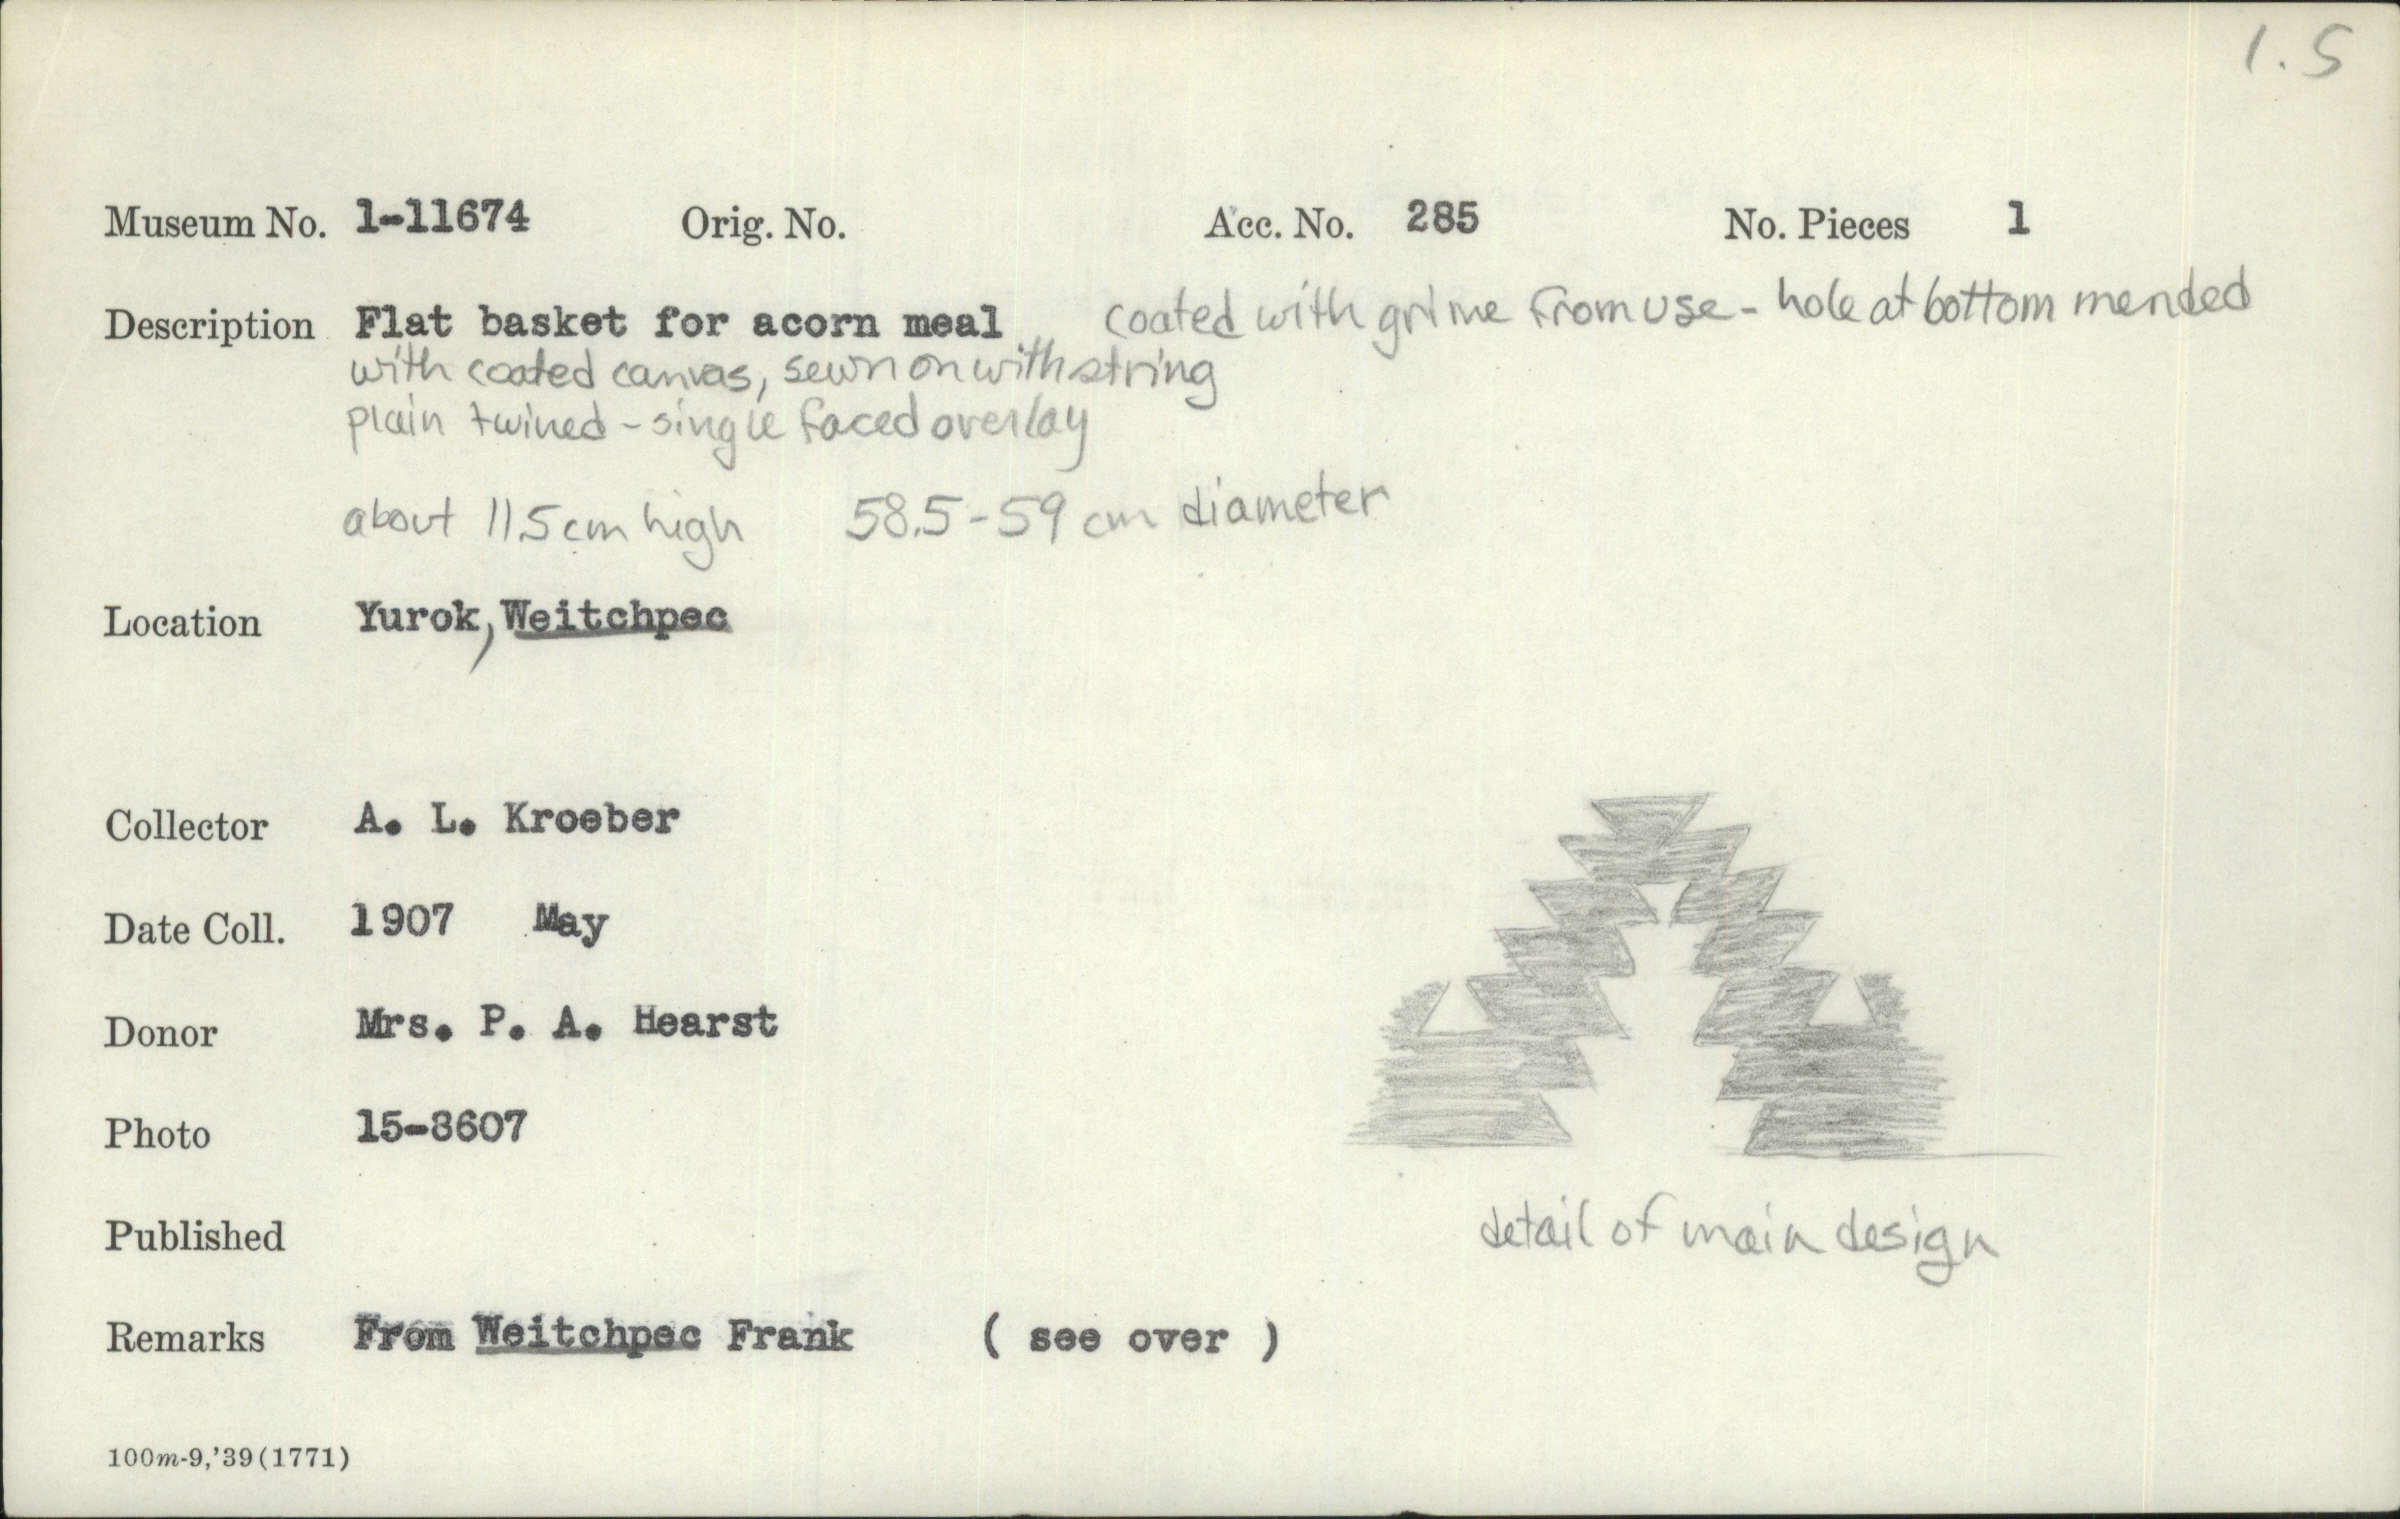 1.5
Museum No. 1-11674 Orig. No. Acc. No. 285 No. Pieces 1
Description Flat basket for acorn meal coated with grime from use - hole at bottom mended
with coated canvas, sewn on with string
plain twined - single faced overlay
about 11.5 cm high 58.5 - 59 cm diameter
Location Yurok, Weitchpec
Collector A. L. Kroeber
Date Coll. 1907 May
Donor Mrs. P. A. Hearst
Photo 15-8607
Published
detail of main design
Remarks From Weitchpec Frank ( see over )
100m-9,'39(1771)